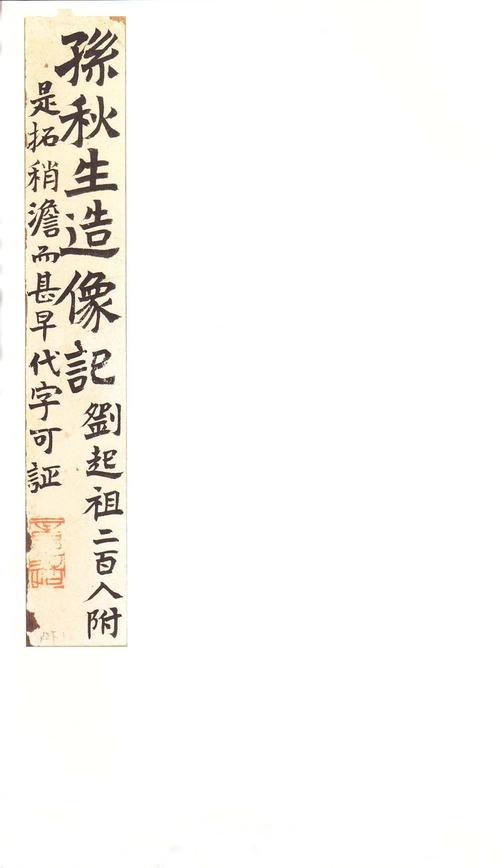 孫秋生造像記 劉起祖二百人附
是拓稍澹而甚早代字可証